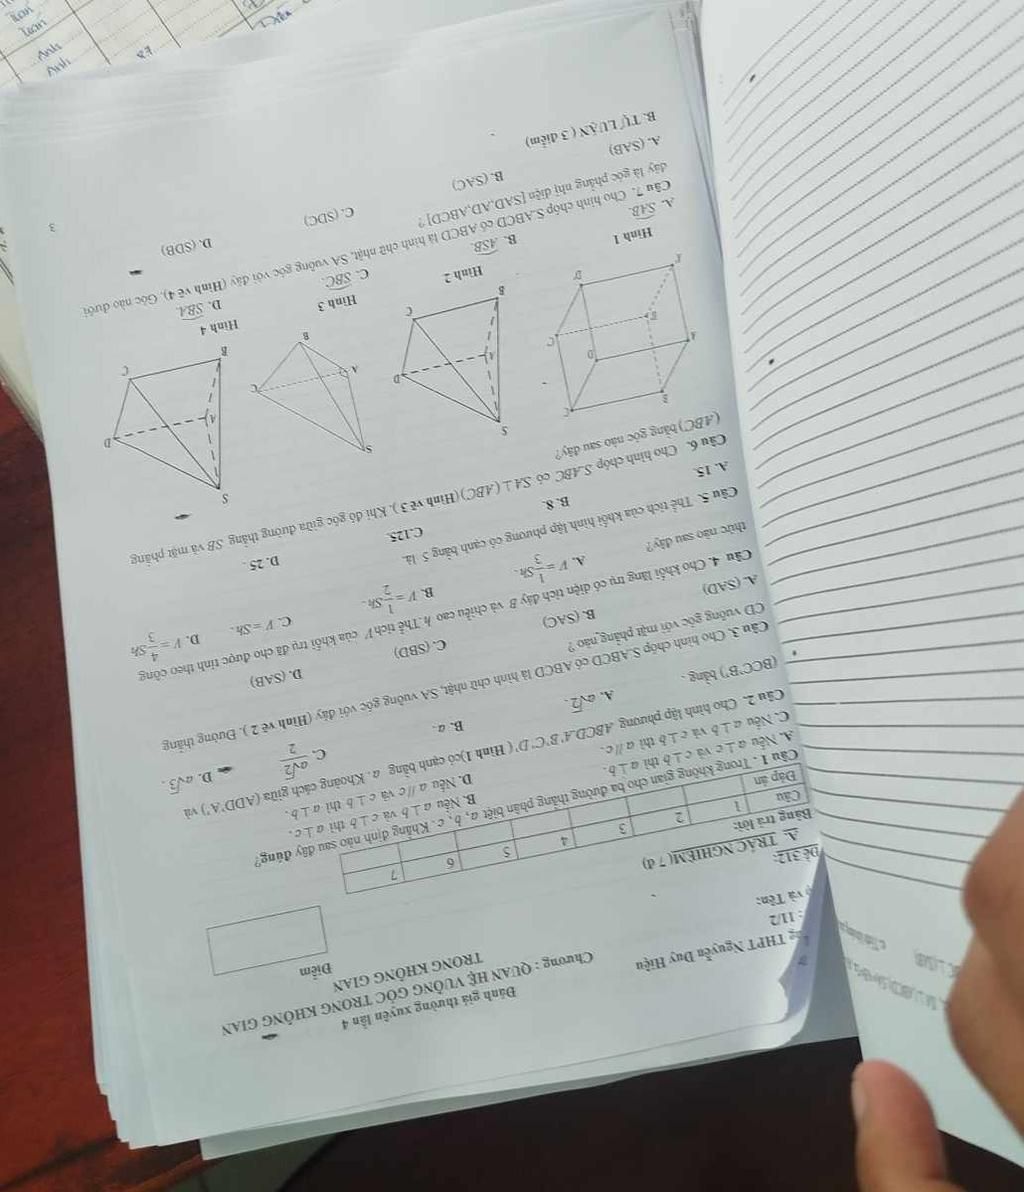 Đánh giá thường xuyên lần 4
THPT Nguyễn Duy Hiệu
Chương : QUAN HỆ VUÔNG GÓC TRONG KHÔNG GIAN
: 11/2
TRONG KHÔNG GIAN
và Tên:
Điểm
Đề 312:
A. TRẮC NGHIỆM( 7 đ)
Bảng trả lời:
Câu 1 2 3 4 5 6 7
Đáp án
Câu 1. Trong không gian cho ba đường thẳng phân biệt a, b, c. Khẳng định nào sau đây đúng?
A. Nếu a ⊥ c và c ⊥ b thì a ⊥ b. B. Nếu a ⊥ b và c ⊥ b thì a ⊥ c.
C. Nếu a ⊥ b và c ⊥ b thì a // c. D. Nếu a // c và c ⊥ b thì a ⊥ b.
Câu 2. Cho hình lập phương ABCD.A'B'C'D' ( Hình 1)có cạnh bằng a. Khoảng cách giữa (ADD'A') và
(BCC'B') bằng .
A. a√2. B. a. C. a√2/2 D. a√3 .
Câu 3. Cho hình chóp S.ABCD có ABCD là hình chữ nhật, SA vuông góc với đáy (Hình vẽ 2 ). Đường thẳng
CD vuông góc với mặt phẳng nào ?
A. (SAD) B. (SAC) C. (SBD) D. (SAB)
Câu 4. Cho khối lăng trụ có diện tích đáy B và chiều cao h. Thể tích V của khối trụ đã cho được tính theo công
thức nào sau đây?
A. V = 1/3 Sh. B. V = 1/2 Sh. C. V = Sh. D. V = 4/3 Sh
Câu 5. Thể tích của khối hình lập phương có cạnh bằng 5 là
A. 15. B. 8. C.125. D. 25 .
Câu 6. Cho hình chóp S.ABC có SA ⊥ (ABC)(Hình vẽ 3 ). Khi đó góc giữa đường thẳng SB và mặt phẳng
(ABC) bằng góc nào sau đây?
Hình 1 Hình 2 Hình 3 Hình 4
A. SAB. B. ASB. C. SBC. D. SBA.
Câu 7. Cho hình chóp S.ABCD có ABCD là hình chữ nhật, SA vuông góc với đáy (Hình vẽ 4). Góc nào dưới
đây là góc phẳng nhị diện [SAD,AD,ABCD] ?
A. (SAB) B. (SAC) C. (SDC) D. (SDB)
B. TỰ LUẬN ( 3 điểm)
3